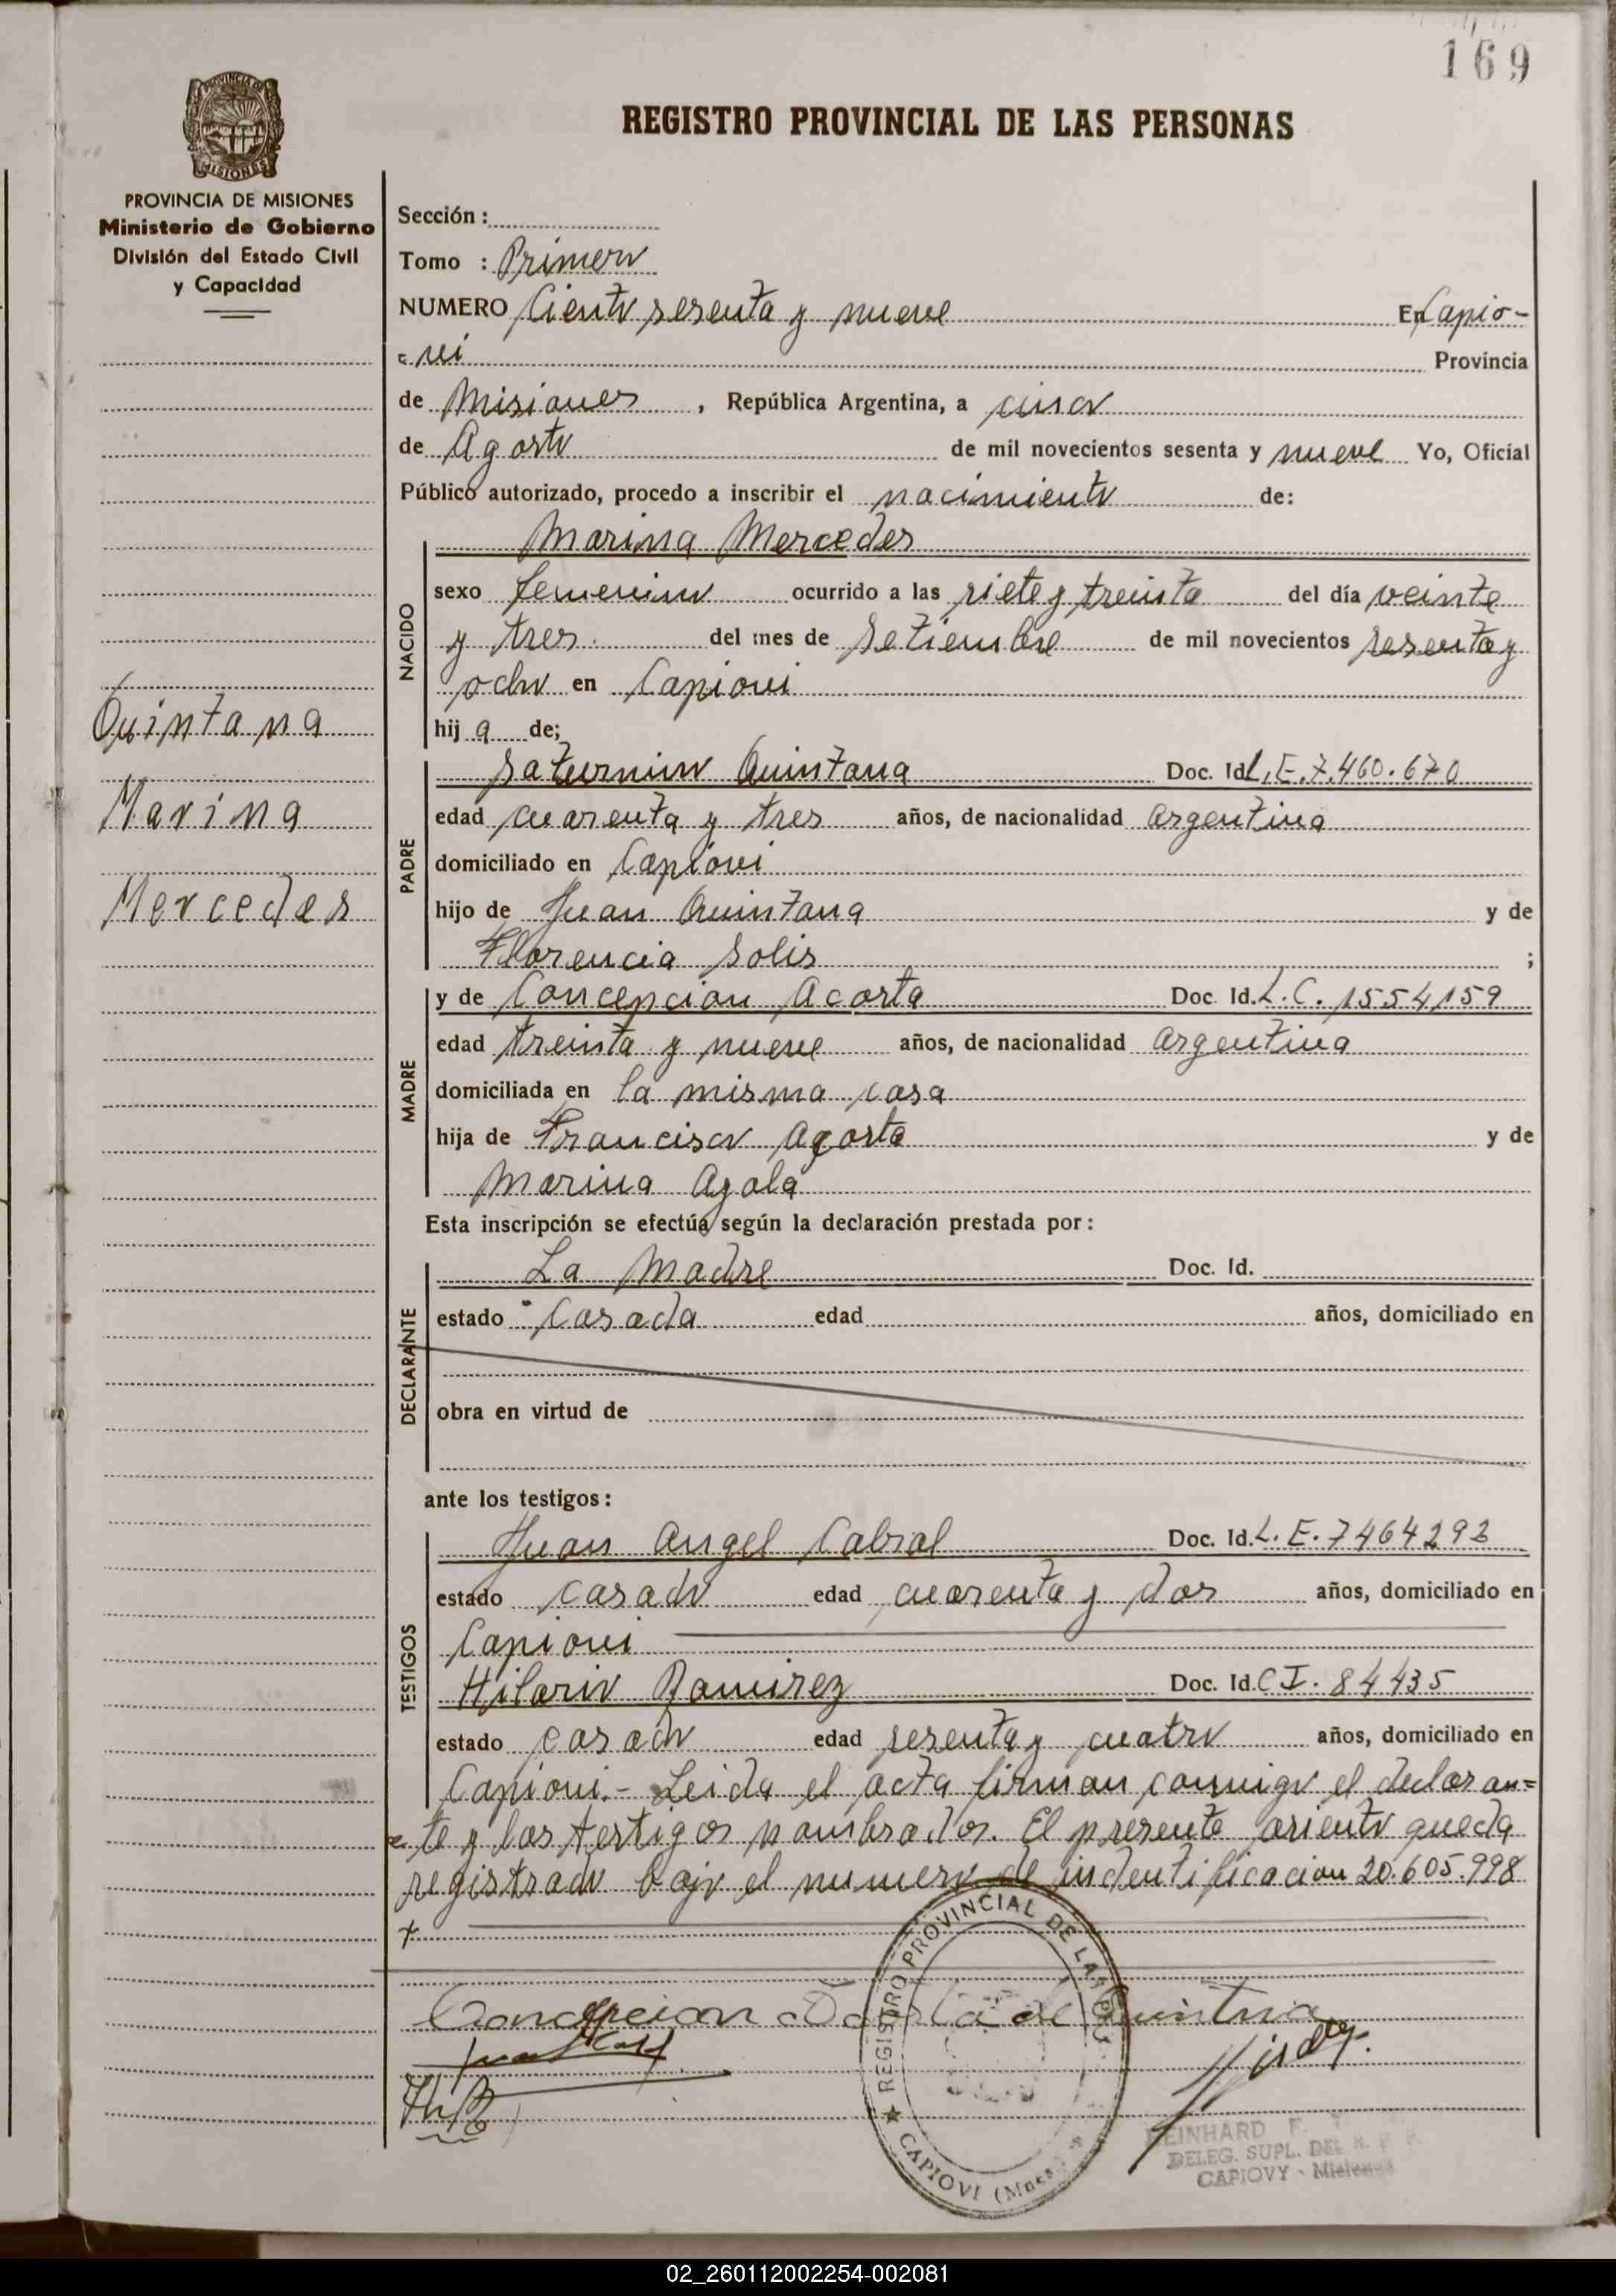 169
PROVINCIA DE
MISIONES
REGISTRO PROVINCIAL DE LAS PERSONAS
PROVINCIA DE MISIONES
Ministerio de Gobierno
División del Estado Civil
y Capacidad
Quintana
Marina
Mercedes
Sección :
Tomo : Primero
NUMERO Ciento sesenta y nueve En Capio-
= vi Provincia
de Misiones , República Argentina, a cinco
de Agosto de mil novecientos sesenta y nueve Yo, Oficial
Público autorizado, procedo a inscribir el nacimiento de:
NACIDO
Marina Mercedes
sexo femenino ocurrido a las siete y treinta del día veinte
y tres. del mes de Setiembre de mil novecientos sesenta y
ocho en Capiovi
hij a de;
PADRE
Saturnino Quintana Doc. Id L.E.7.460.670
edad cuarenta y tres años, de nacionalidad argentina
domiciliado en Capiovi
hijo de Juan Quintana y de
Florencia Solis ;
MADRE
y de Concepcion Acosta Doc. Id. L.C. 1554159
edad treinta y nueve años, de nacionalidad argentina
domiciliada en la misma casa
hija de Francisco Acosta y de
Marina Ayala
Esta inscripción se efectúa según la declaración prestada por :
DECLARANTE
La Madre Doc. Id.
estado Casada edad años, domiciliado en
obra en virtud de
ante los testigos :
TESTIGOS
Juan Angel Cabral Doc. Id. L.E. 7464293
estado casado edad cuarenta y dos años, domiciliado en
Capiovi
Hilario Ramirez Doc. Id. C I. 84435
estado casado edad sesenta y cuatro años, domiciliado en
Capiovi.- Leida el acta firman conmigo el declaran=
= te y los testigos nombrados. El presente asiento queda
registrado bajo el numero de indentificacion 20.605.998
Concepcion Acosta de Quintna
REGISTRO PROVINCIAL DE LAS PERS
★ CAPIOVI (Mnes.)
REINHARD F.
DELEG. SUPL. DEL R. P. P.
CAPIOVY - Misiones
02_260112002254-002081